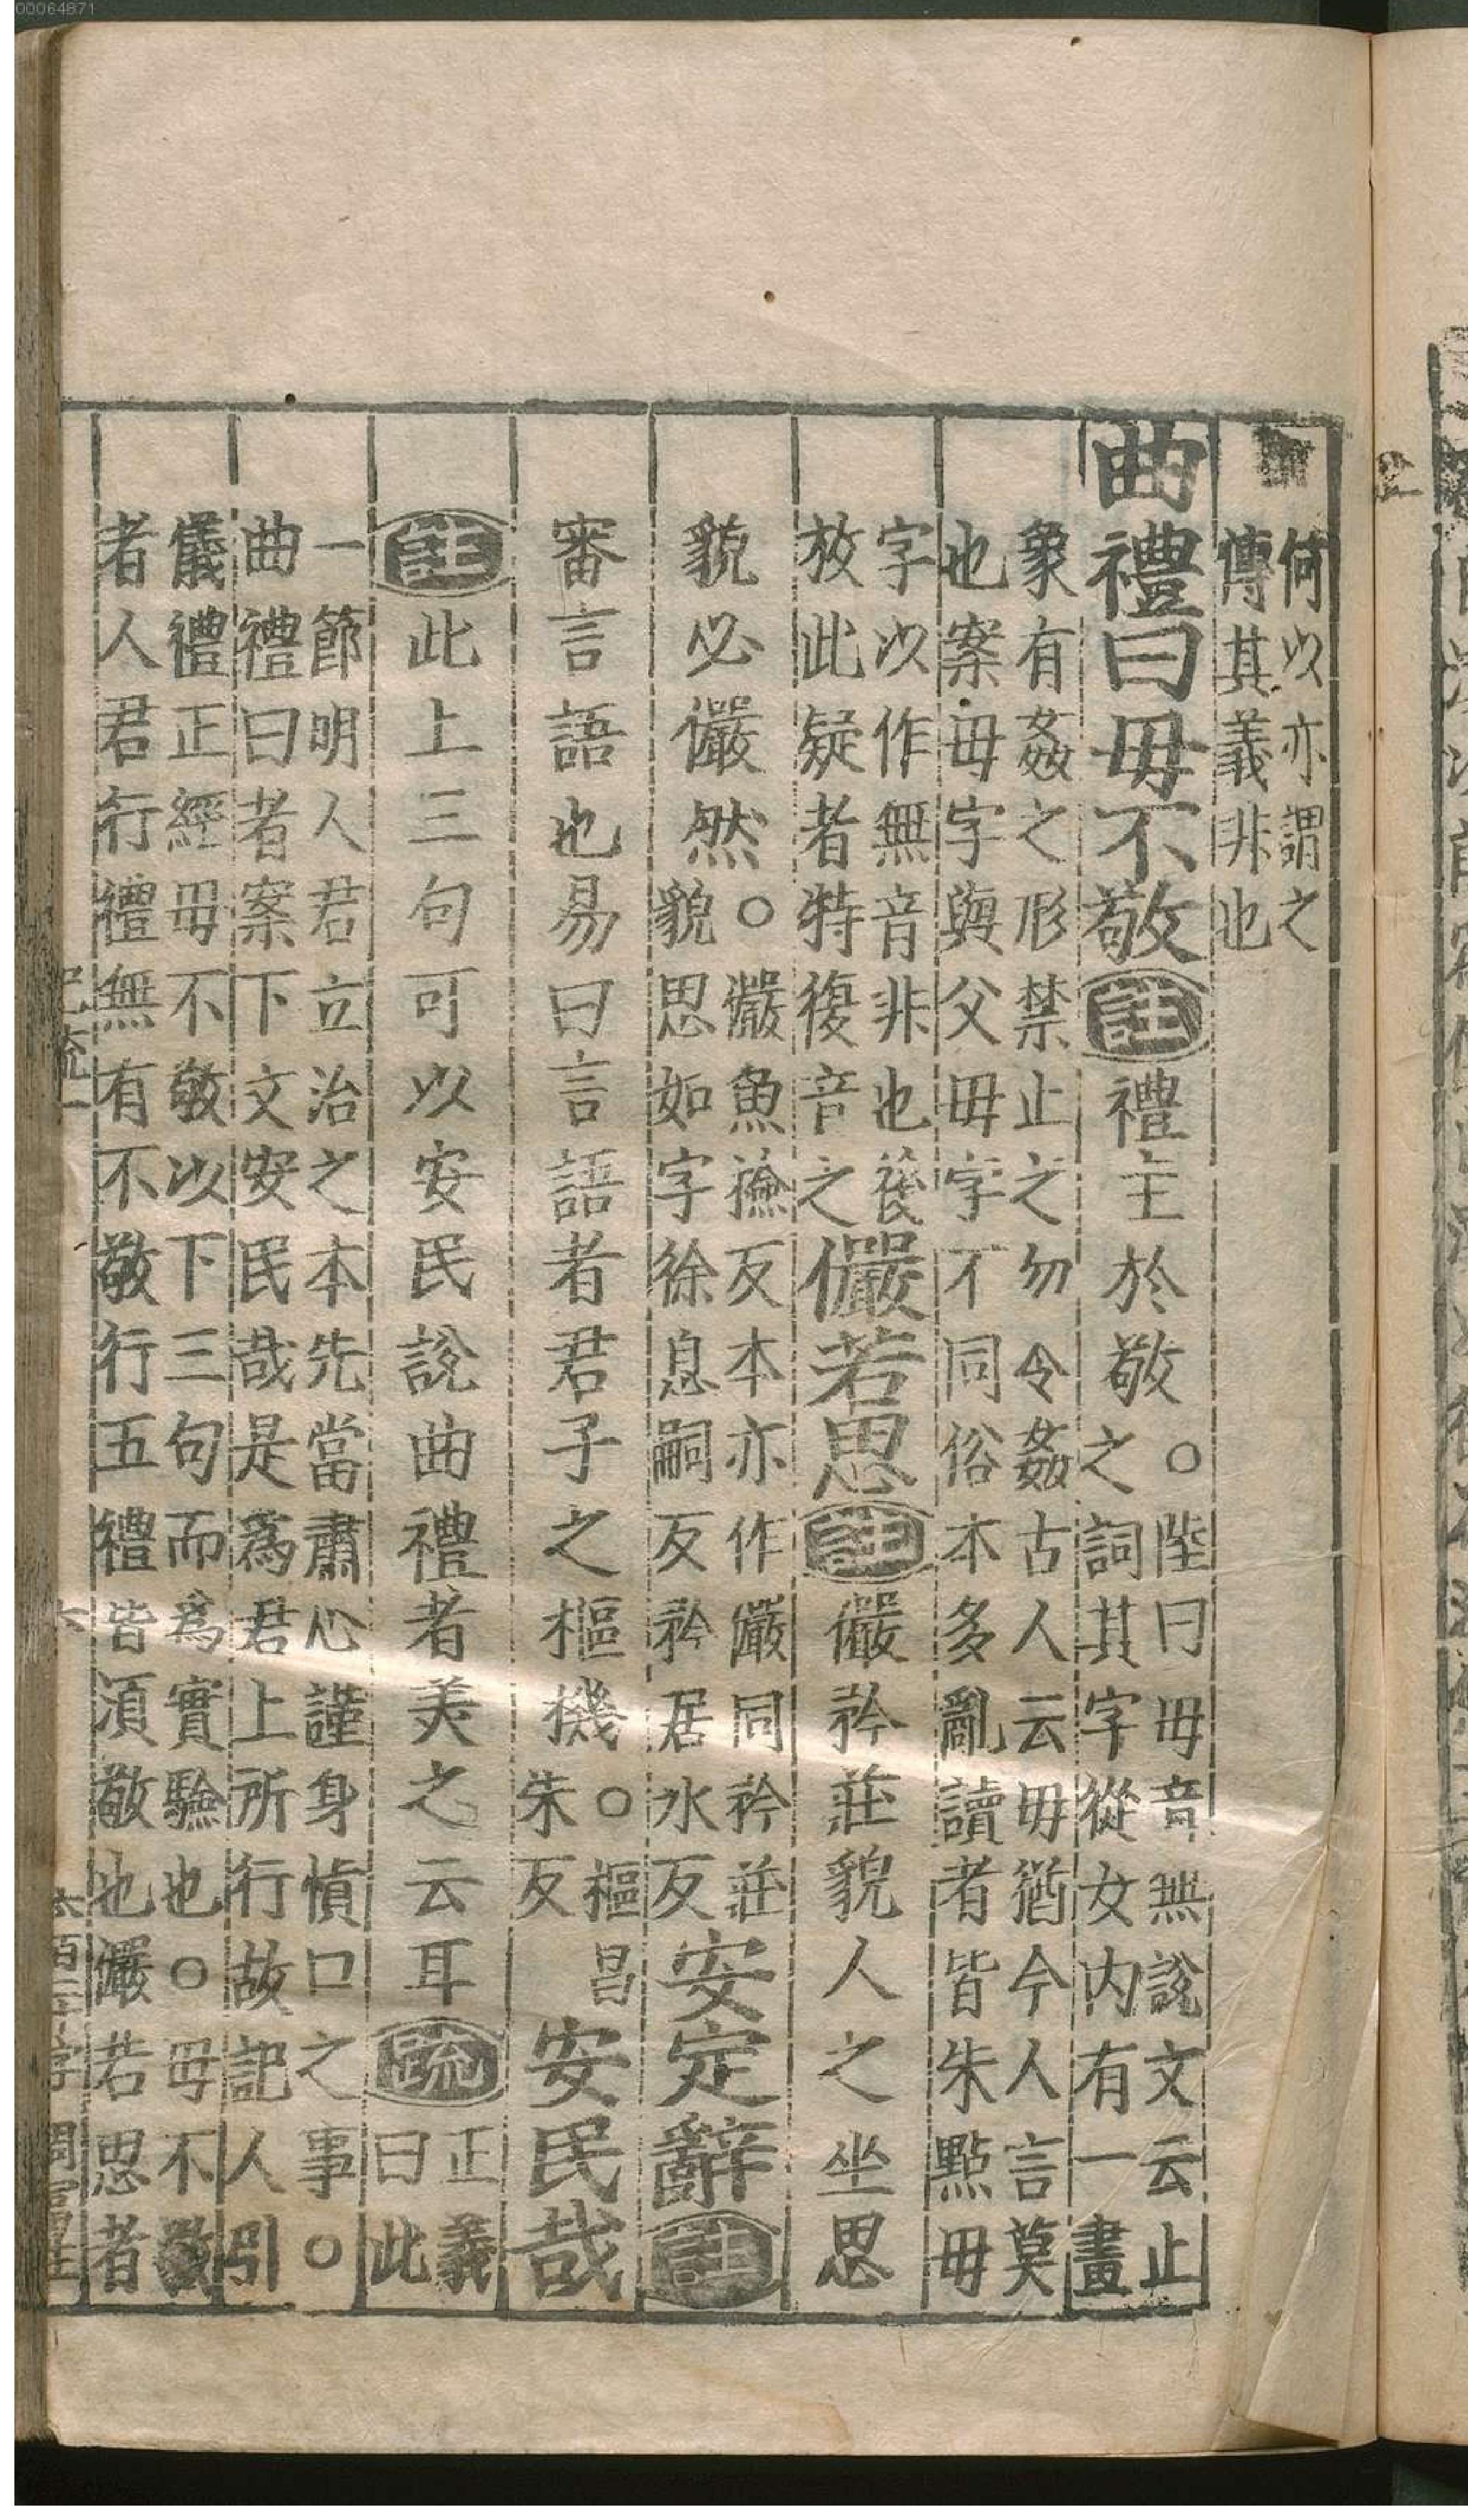 00064871
何以亦謂之
傳其義非也
曲禮曰毋不敬註禮主於敬○陸曰毋音無說文云止
之詞其字從女內有一畫
象有姦之形禁止之勿令姦古人云毋猶今人言莫
也案毋字與父毋字不同俗本多亂讀者皆朱點毋
字以作無音非也後
放此疑者特復音之儼若思註儼矜莊貌人之坐思
貌必儼然○儼魚撿反本亦作嚴同矜莊
貌思如字徐息嗣反矜居氷反安定辭註
審言語也易曰言語者君子之樞機○樞昌
朱反安民哉
註此上三句可以安民說曲禮者美之云耳疏正義
曰此
一節明人君立治之本先當肅心謹身慎口之事○
曲禮曰者案下文安民哉是為君上所行故記人引
儀禮正經毋不敬以下三句而為實驗也○毋不敬
者人君行禮無有不敬行五禮皆須敬也儼若思者